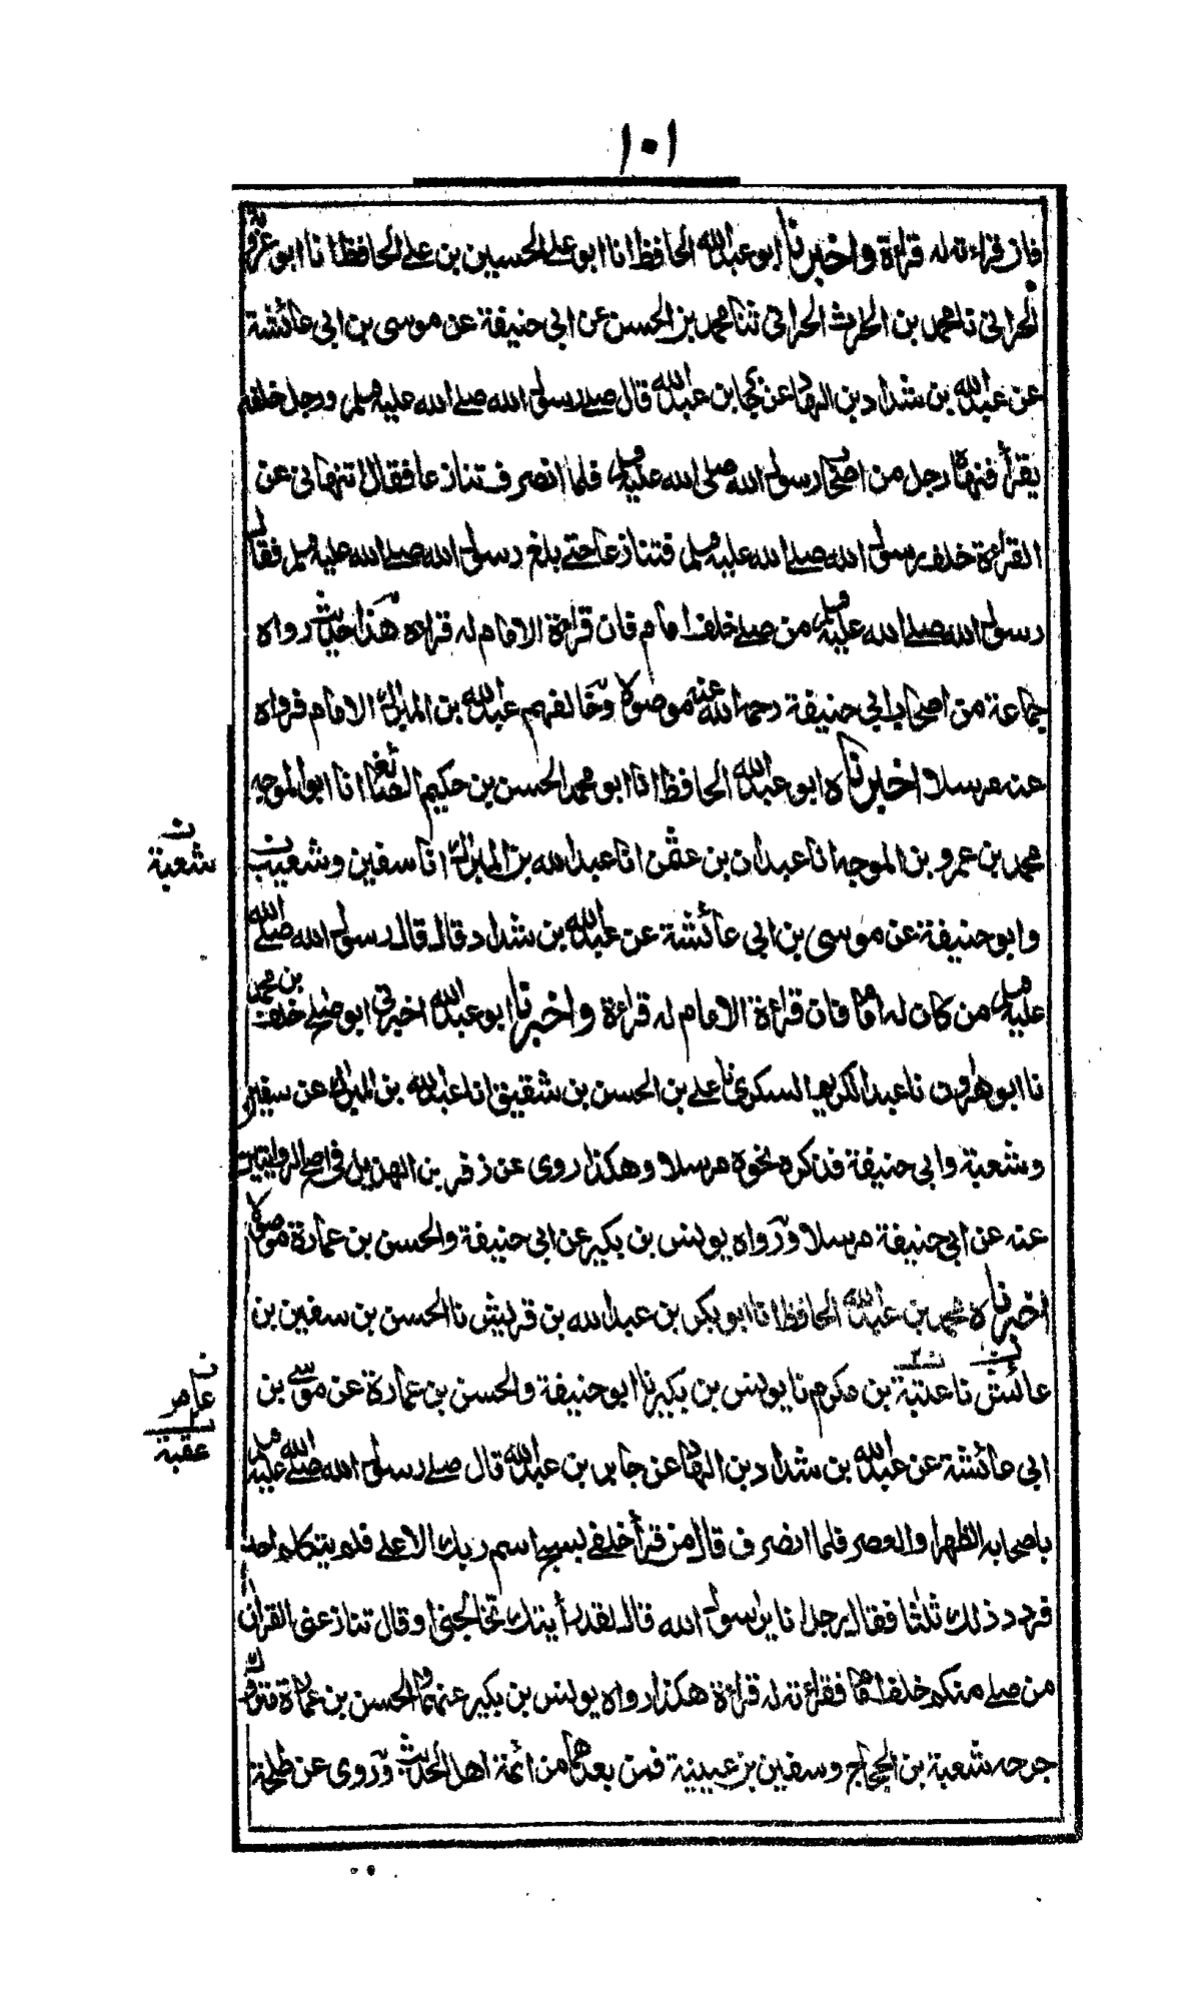 ١٠١
فان قراءته له قراءة واخبرنا ابو عبدالله الحافظ انا ابو علي الحسين بن علي الحافظ انا ابو عروبة
الحراني نا محمد بن الحارث الحراني ثنا محمد بن الحسن عن ابي حنيفة عن موسى بن ابي عائشة
عن عبدالله بن شداد بن الهاد عن جابر بن عبدالله قال صلے رسول الله صلے الله عليه وسلم ورجل خلفه
يقرأ فنهاه رجل من اصحاب رسول الله صلى الله عليه وسلم فلما انصرف تنازعا فقال اتنهاني عن
القراءة خلف رسول الله صلے الله عليه وسلم فتنازعا حتے بلغ رسول الله صلے الله عليه وسلم فقال
رسول الله صلے الله عليه وسلم من صلے خلف امام فان قراءة الامام له قراءة هذا حديث رواه
جماعة من اصحاب ابي حنيفة رحمه الله عنه موصولا وخالفهم عبدالله بن المبارك الامام فرواه
عنه مرسلا اخبرناه ابو عبدالله الحافظ انا ابو محمد الحسن بن حكيم الصائغ انا ابو الموجه
محمد بن عمرو بن الموجه انا عبدان بن عثمن انا عبد الله بن المبارك انا سفين وشعيب
شعبة
وابو حنيفة عن موسى بن ابي عائشة عن عبدالله بن شداد قال قال رسول الله صلے الله
عليه وسلم من كان له امام فان قراءة الامام له قراءة واخبرنا ابو عبدالله اخبرني ابو صلے خلف بن محمد
نا ابو هرون نا عبد الكريم السكري نا علي بن الحسن بن شقيق انا عبدالله بن المبارك عن سفين
وشعبة وابي حنيفة فذكره نحوه مرسلا وهكذا روى عن زفر بن الهذيل في اصح الروايتين
عنه عن ابي حنيفة مرسلا ورواه يونس بن بكير عن ابي حنيفة والحسن بن عمارة موصولا
اخبرناه محمد بن عبدالله الحافظ انا ابو بكر بن عبد الله بن قريش نا الحسن بن سفين بن
عائش نا عتبة بن مكرم نا يونس بن بكير نا ابو حنيفة والحسن بن عمارة عن موسى بن
عامر
عقبة
ابي عائشة عن عبدالله بن شداد بن الهاد عن جابر بن عبدالله قال صلے رسول الله صلے الله عليه وسلم
باصحابه الظهر او العصر فلما انصرف قال من قرأ خلفي بسبح اسم ربك الاعلى فلم يتكلم احد
فردد ذلك ثلثا فقال رجل انا يا رسول الله قال لقد رأيتك تخالجني او قال تنازعني القرآن
من صلے منكم خلف امام فقراءته له قراءة هكذا رواه يونس بن بكير عنهما والحسن بن عمارة متروك
جرحه شعبة بن الحجاج وسفين بن عيينة فمن بعدهما من ائمة اهل الحديث وروى عن طلحة